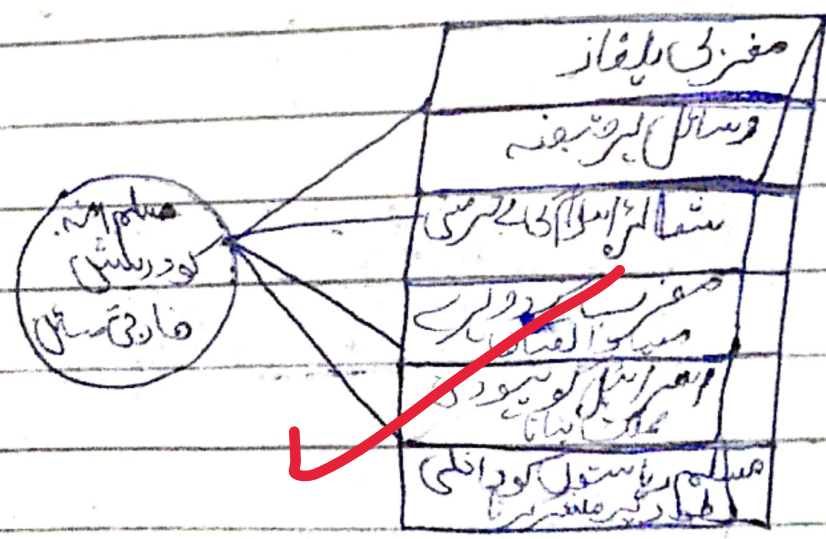 مسلم امتہ
کو درپیش
خارجی مسائل
مغربی یلغار
وسائل پر قبضہ
شعائر اسلام کی بے حرمتی
مغرب کے دوہرے
اسرائیل کو یہودی
مملکت بنانا
مسلم ریاستوں کو داخلی
طور پر منتشر کرنا